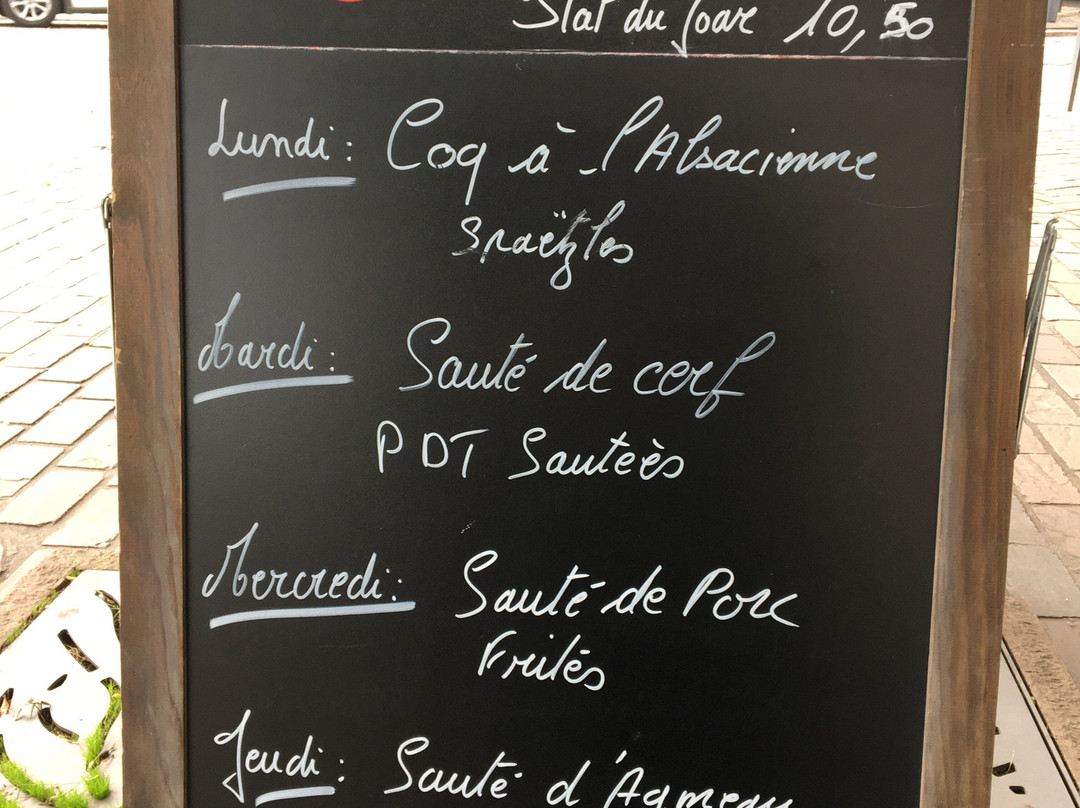 Plat du Jour 10,50
Lundi : Coq à l'Alsacienne
Spaëtzles
Mardi : Sauté de cerf
PDT Sauteès
Mercredi : Sauté de Porc
Frités
Jeudi : Sauté d'Agneau